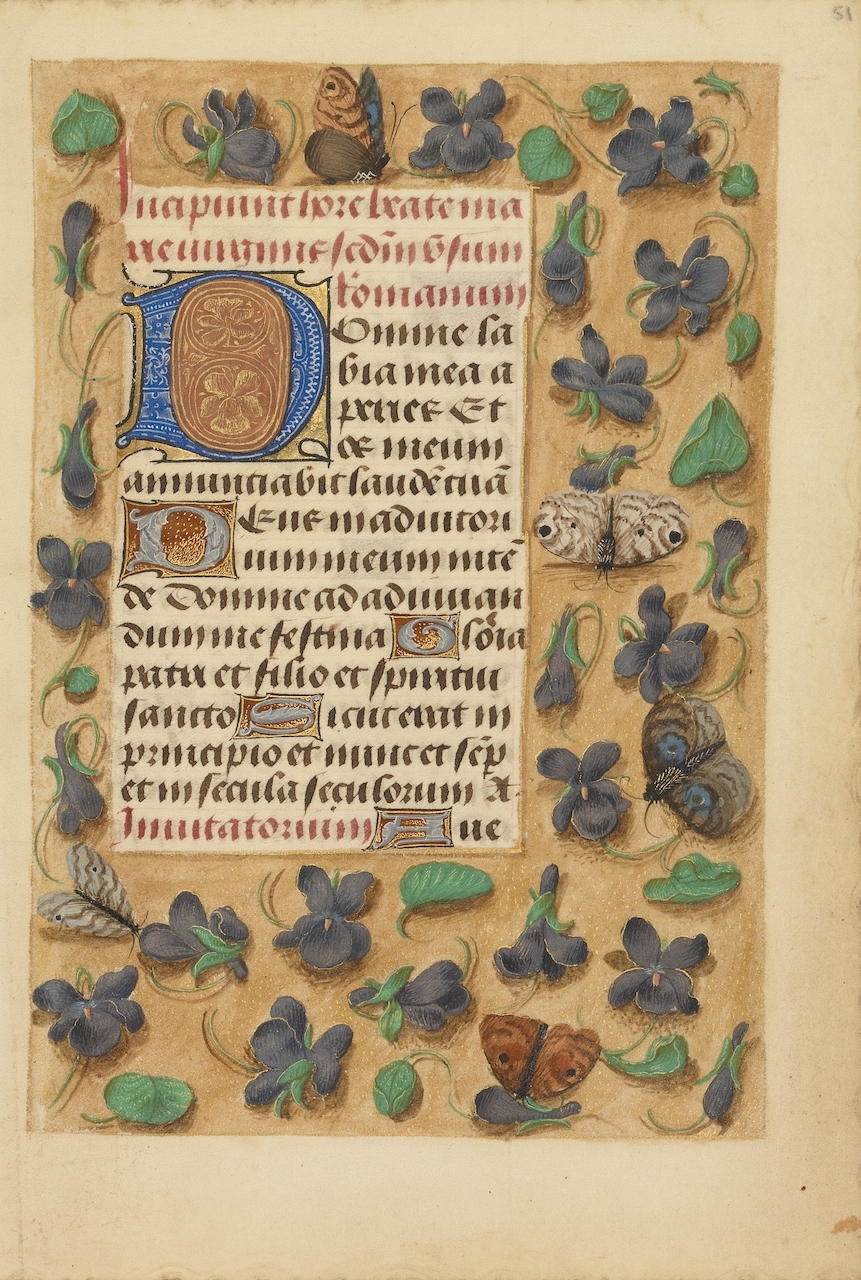 51
Incipiunt hore beate ma
rie uirginis scdm̄ vsum
Romanum
Domine la
bia mea a
peries Et
os meum
annunciabit laudē tuā
Deus in adiutori
um meum intē
de Domine ad adiuuan
dum me festina Gloria
patri et filio et spiritui
sancto Sicut erat in
principio et nunc et sēp
et in secula seculorum A.
Inuitatorium Aue